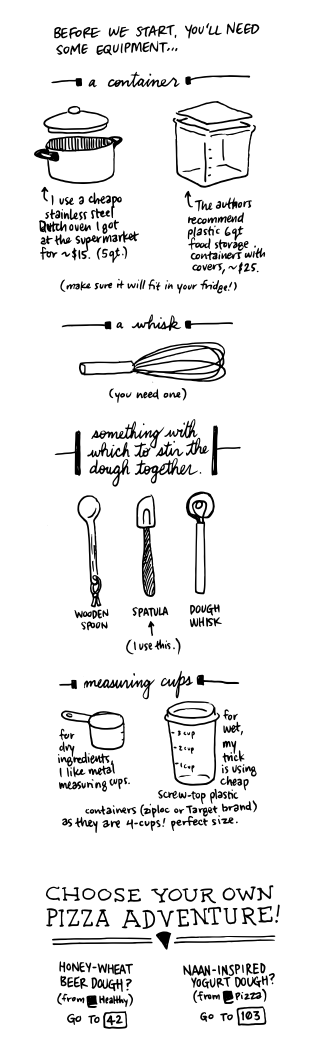 BEFORE WE START, YOU'LL NEED
SOME EQUIPMENT...
a container
I use a cheapo
stainless steel
Dutch oven I got
at the supermarket
for ~$15. (5qt.)
The authors
recommend
plastic 6qt
food storage
containers with
covers, ~$25.
(make sure it will fit in your fridge!)
a whisk
(you need one)
something with
which to stir the
dough together.
WOODEN
SPOON
SPATULA
DOUGH
WHISK
(I use this.)
measuring cups
for
dry
ingredients,
I like metal
measuring cups.
3 cup
2 cup
1 cup
for
wet,
my
trick
is using
cheap
screw-top plastic
containers (ziploc or Target brand)
as they are 4-cups! perfect size.
CHOOSE YOUR OWN
PIZZA ADVENTURE!
HONEY-WHEAT
BEER DOUGH?
(from Healthy)
GO TO 42
NAAN-INSPIRED
YOGURT DOUGH?
(from Pizza)
GO TO 103